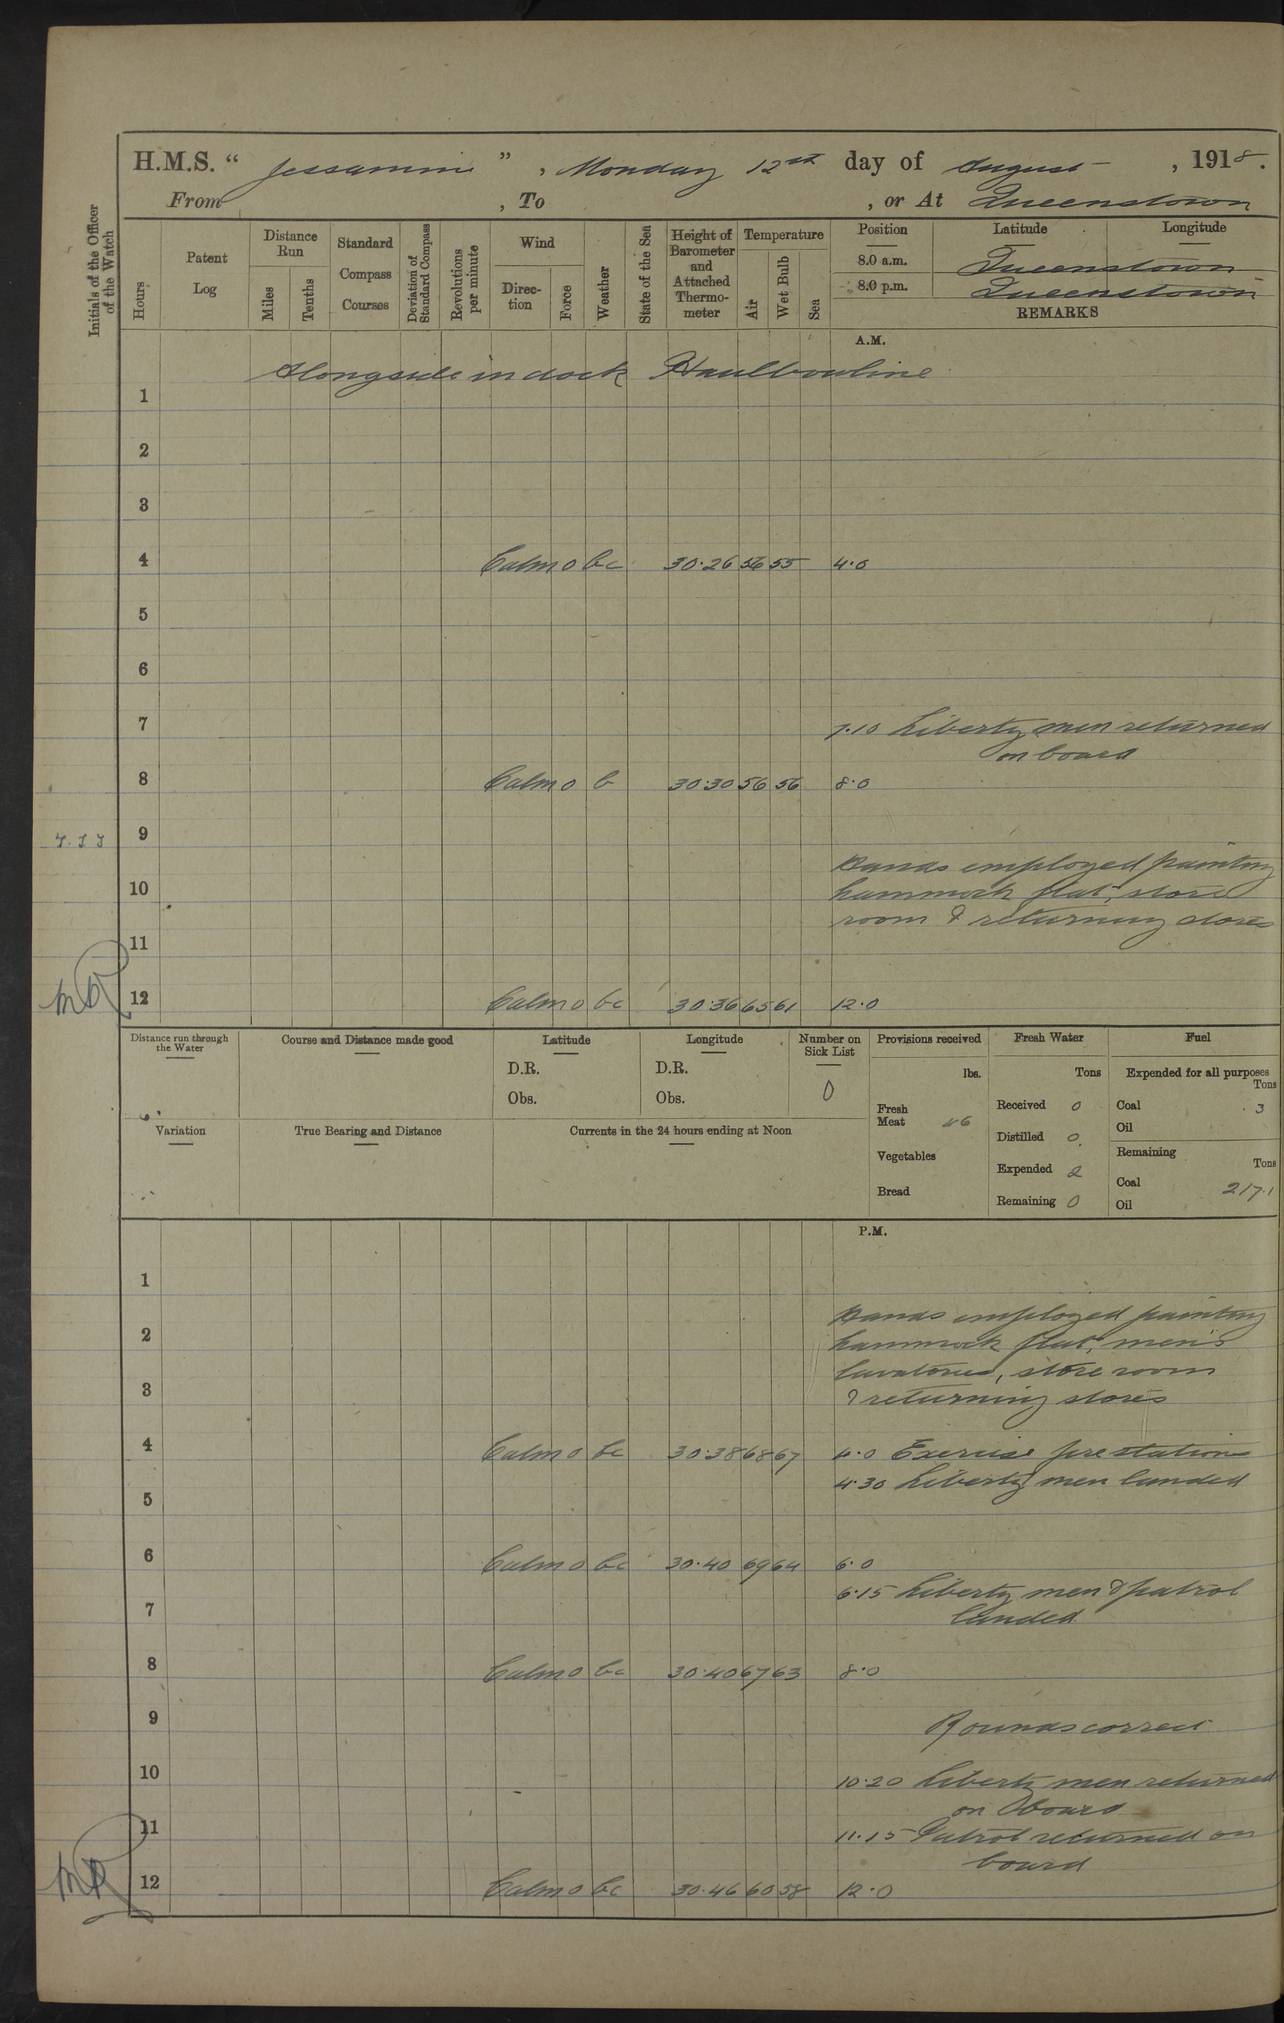 H.M.S. " Jessamine ", Monday 12th day of August, 1918.
From , To , or At Queenstown
Initials of the Officer of the Watch
Hours
Patent Log
Distance Run
Miles
Tenths
Standard Compass Courses
Deviation of Standard Compass
Revolutions per minute
Wind
Direction
Force
Weather
State of the Sea
Height of Barometer and Attached Thermometer
Temperature
Air
Wet Bulb
Sea
Position Latitude Longitude
8.0 a.m. Queenstown
8.0 p.m. Queenstown
REMARKS
A.M.
Alongside in dock Haulbowline
1
2
3
4 Calm 0 bc 30.26 56 55 4.0
5
6
7 7.10 Liberty men returned
on board
8 Calm 0 b 30.30 56 56 8.0
9
Hands employed painting
10 hammock flat, store
room & returning stores
11
12 Calm 0 bc 30.36 65 61 12.0
Distance run through the Water
Course and Distance made good
Latitude
D.R.
Obs.
Longitude
D.R.
Obs.
Number on Sick List
0
Provisions received
lbs.
Fresh Meat 46
Vegetables
Bread
Fresh Water
Tons
Received 0
Distilled 0
Expended 2
Remaining 0
Fuel
Expended for all purposes
Tons
Coal 3
Oil
Remaining
Tons
Coal 217.1
Oil
Variation
True Bearing and Distance
Currents in the 24 hours ending at Noon
P.M.
1
Hands employed painting
2 hammock flat, men's
lavatories, store room
3 & returning stores
4 Calm 0 bc 30.38 68 67 4.0 Exercise fire stations
4.30 Liberty men landed
5
6 Calm 0 bc 30.40 69 64 6.0
6.15 Liberty men & patrol
7 landed
8 Calm 0 bc 30.40 67 63 8.0
9 Rounds correct
10 10.20 Liberty men returned
on board
11 11.15 Patrol returned on
board
12 Calm 0 bc 30.46 60 58 12.0